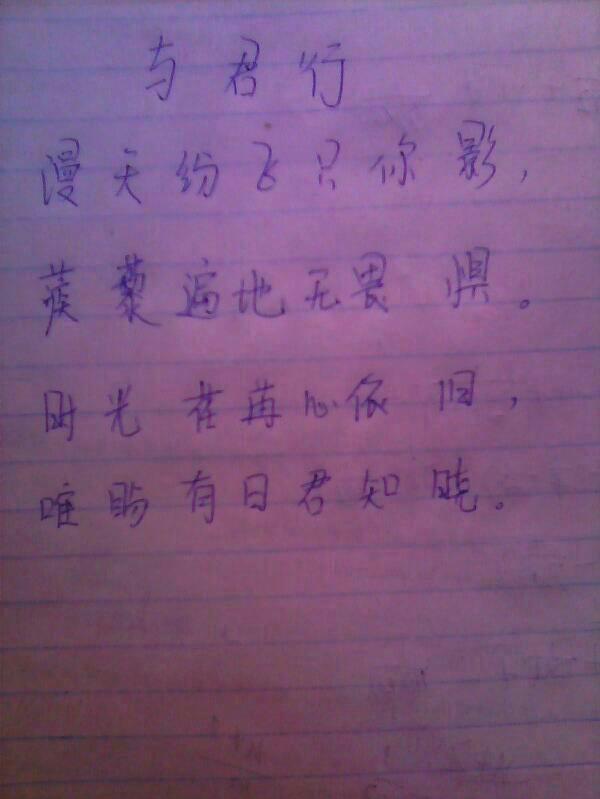 与君行
漫天纷飞只你影，
蒺藜遍地无畏惧。
时光荏苒心依旧，
唯盼有日君知晓。